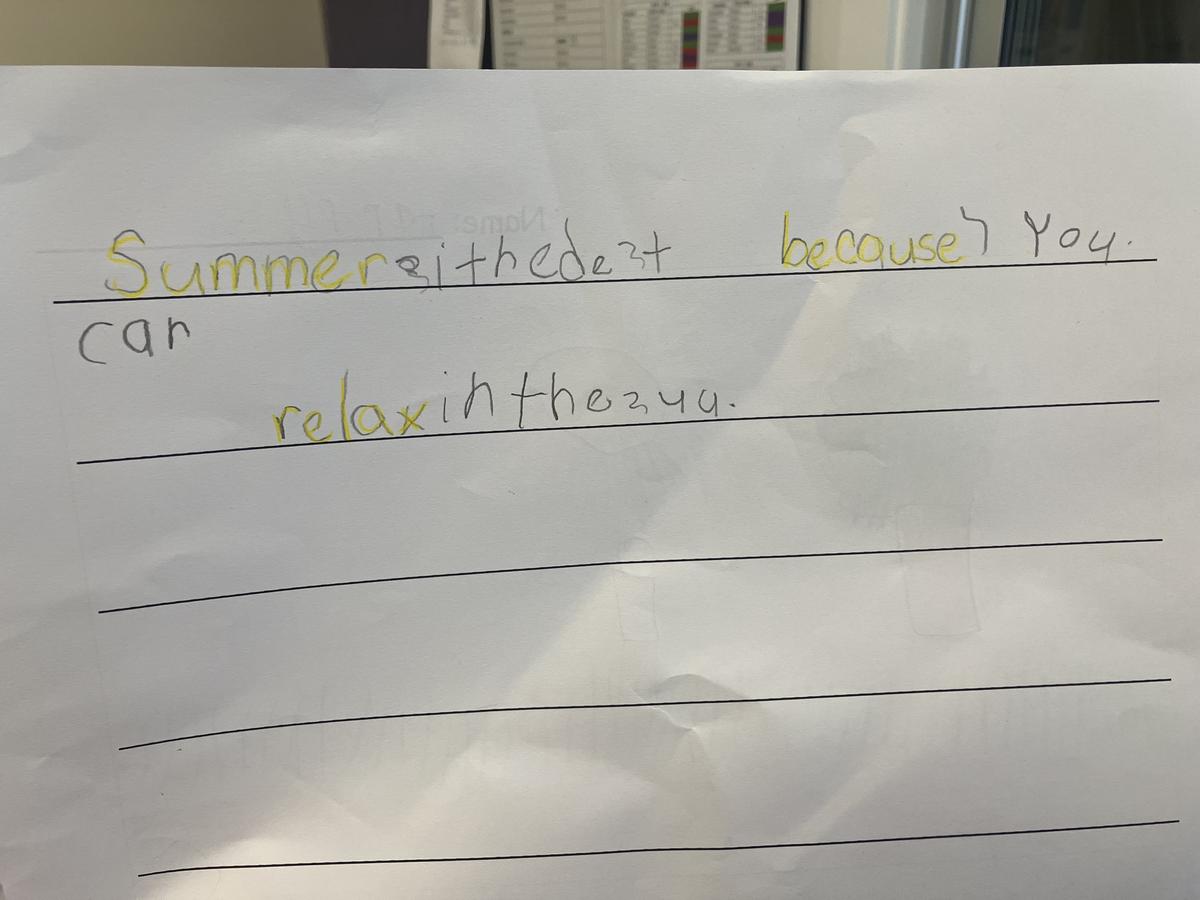 Summer si the dest because You.
can
relax in the sua.